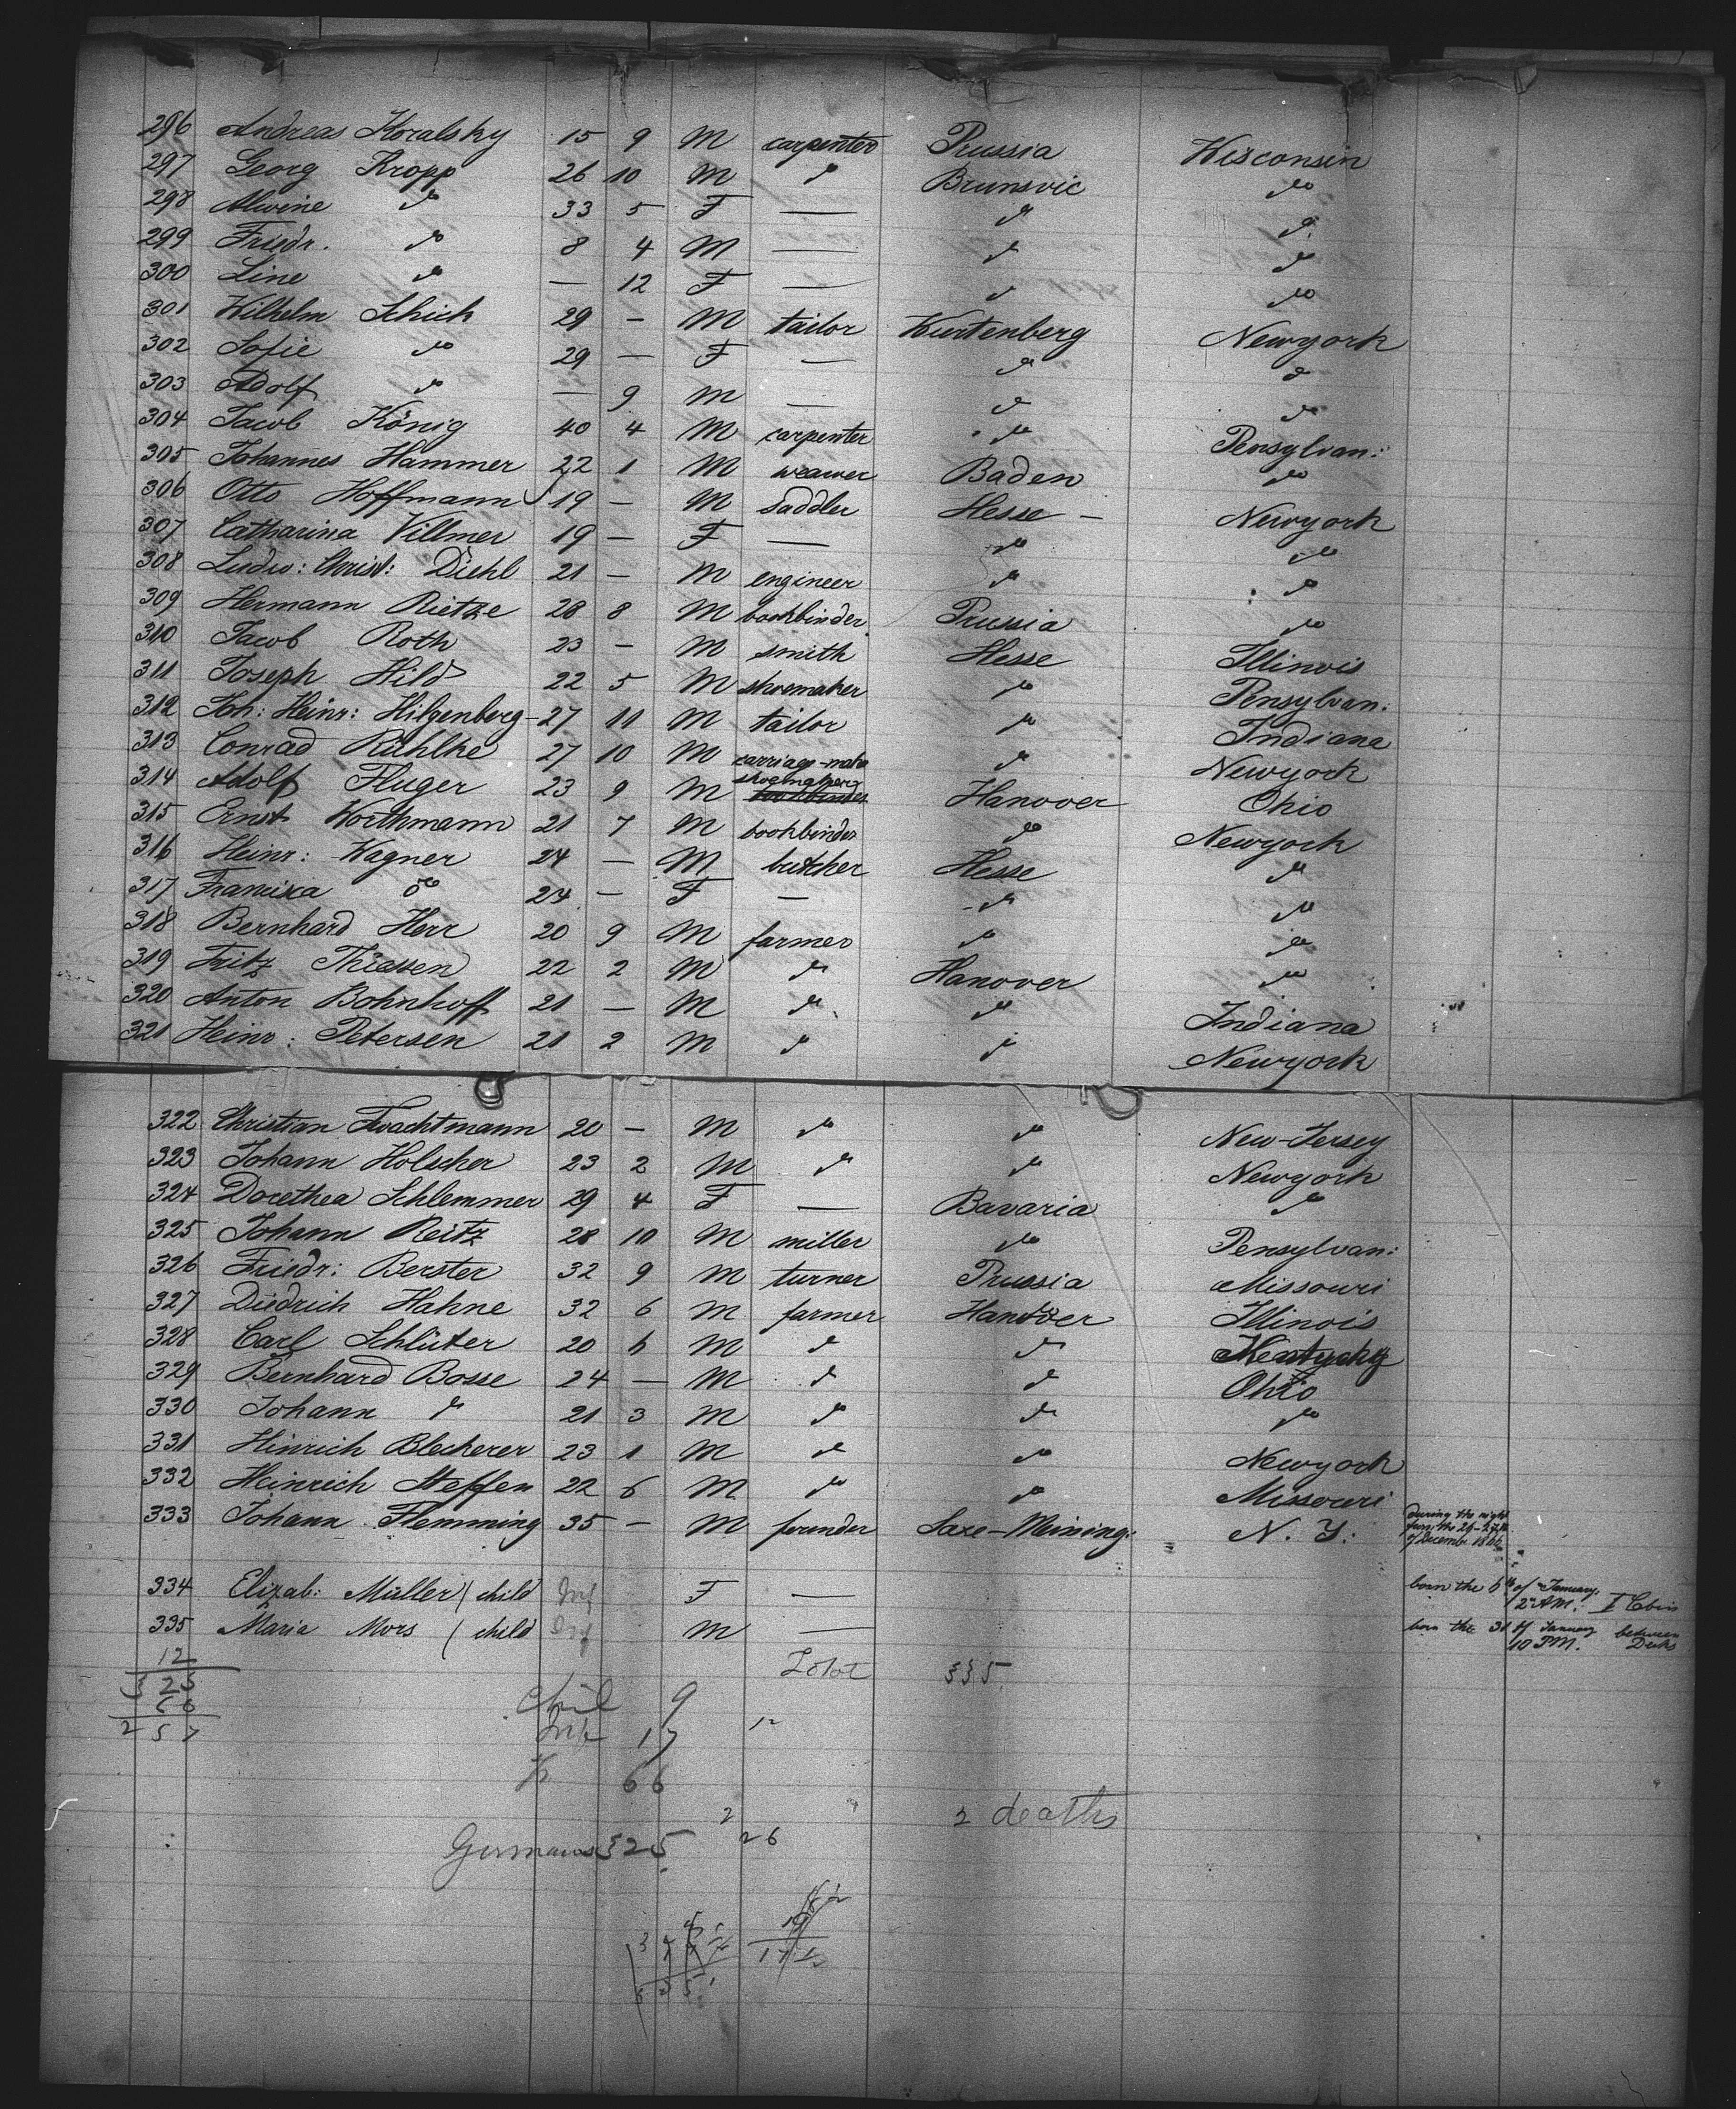 296 Andreas Koralsky 15 9 M carpenter Prussia Wisconsin
297 Georg Kropp 26 10 M do Brunsvic do
298 Alwine do 33 5 F — do do
299 Friedr. do 8 4 M — do do
300 Line do — 12 F — do do
301 Wilhelm Schich 29 — M tailor Wurtenberg Newyork
302 Sofie do 29 — F — do do
303 Adolf do — 9 M — do do
304 Jacob König 40 4 M carpenter do Pensylvan:
305 Johannes Hammer 22 1 M weawer Baden do
306 Otto Hoffmann 19 — M Saddler Hesse — Newyork
307 Catharina Villmer 19 — F — do do
308 Ludw: Christ: Diehl 21 — M engineer do do
309 Hermann Rietze 28 8 M bookbinder Prussia do
310 Jacob Roth 23 — M smith Hesse Illinois
311 Joseph Hild 22 5 M shoemaker do Pensylvan.
312 Joh: Heinr: Hilgenberg 27 11 M tailor do Indiana
313 Conrad Rühlke 27 10 M carriage-make do Newyork
314 Adolf Fluger 23 9 M shoemaker bookbinder Hanover Ohio
315 Ernst Worthmann 21 7 M bookbinder do Newyork
316 Heinr: Wagner 24 — M butcher Hesse do
317 Franciska do 24 — F — do do
318 Bernhard Herr 20 9 M farmer do do
319 Fritz Thiessen 22 2 M do Hanover do
320 Anton Bohnhoff 21 — M do do Indiana
321 Heinr: Petersen 21 2 M do do Newyork
322 Christian Twachtmann 20 — M do do New-Jersey
323 Johann Holscher 23 2 M do do Newyork
324 Dorethea Schlemmer 29 4 F — Bavaria do
325 Johann Reitz 28 10 M miller do Pensylvan:
326 Friedr: Berster 32 9 M turner Prussia Missouri
327 Diedrich Hahne 32 6 M farmer Hanover Illinois
328 Carl Schlüter 20 6 M do do Kentucky
329 Bernhard Bosse 24 — M do do Ohio
330 Johann do 21 3 M do do do
331 Hinrich Blecherer 23 1 M do do Newyork
332 Heinrich Steffen 22 6 M do do Missouri
333 Johann Flemming 35 — M founder Saxe-Meining: N. Y. during the night
of Decemb.
334 Elizab: Müller ( child Inf F — born the 6th of January.
2 AM. I Cabin
335 Maria Mors ( child Inf M — born the 31 of January between
10 PM. Decks
12 Total 335
325
68
257
Chil 9
Inf 17 12
66
2 2 deaths
Germans 325 26